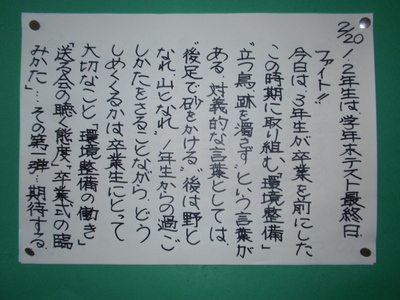 2/20 1・2年生は、学年末テスト最終日。
ファイト!!
今日は、3年生が卒業を前にした
この時期に取り組む“環境整備”
“立つ鳥、跡を濁さず”という言葉が
ある。対義的な言葉としては、
“後足で砂をかける”“後は野と
なれ、山となれ”1年生からの過ご
しかたをさることながら、どう
しめくくるかは卒業生にとって
大切なこと。“環境整備の働き”
“送る会の聴く態度”、“卒業式の臨
みかた”…その第一弾…期待する。